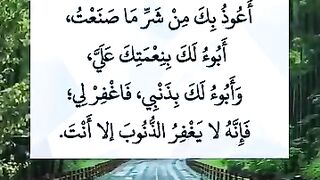 أَعُوذُ بِكَ مِنْ شَرِّ مَا صَنَعْتُ،
أَبُوءُ لَكَ بِنِعْمَتِكَ عَلَيَّ،
وَأَبُوءُ لَكَ بِذَنْبِي، فَاغْفِرْ لِي؛
فَإِنَّهُ لا يَغْفِرُ الذُّنُوبَ إلا أَنْتَ.